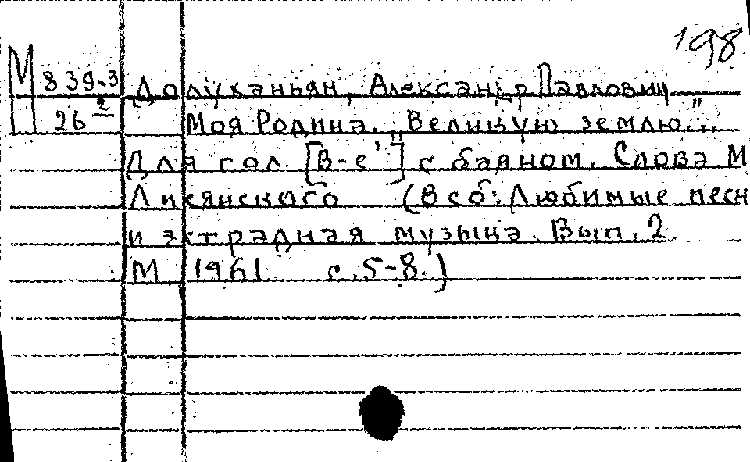 198
М 839-3 Долуханьян, Александр Павлович
26 2 Моя Родина. „Великую землю..."
Для гол [в-е'] с баяном. Слова М
Лисянского (В сб: Любимые песн
и эстрадная музыка. Вып. 2
М 1961 с. 5-8.)